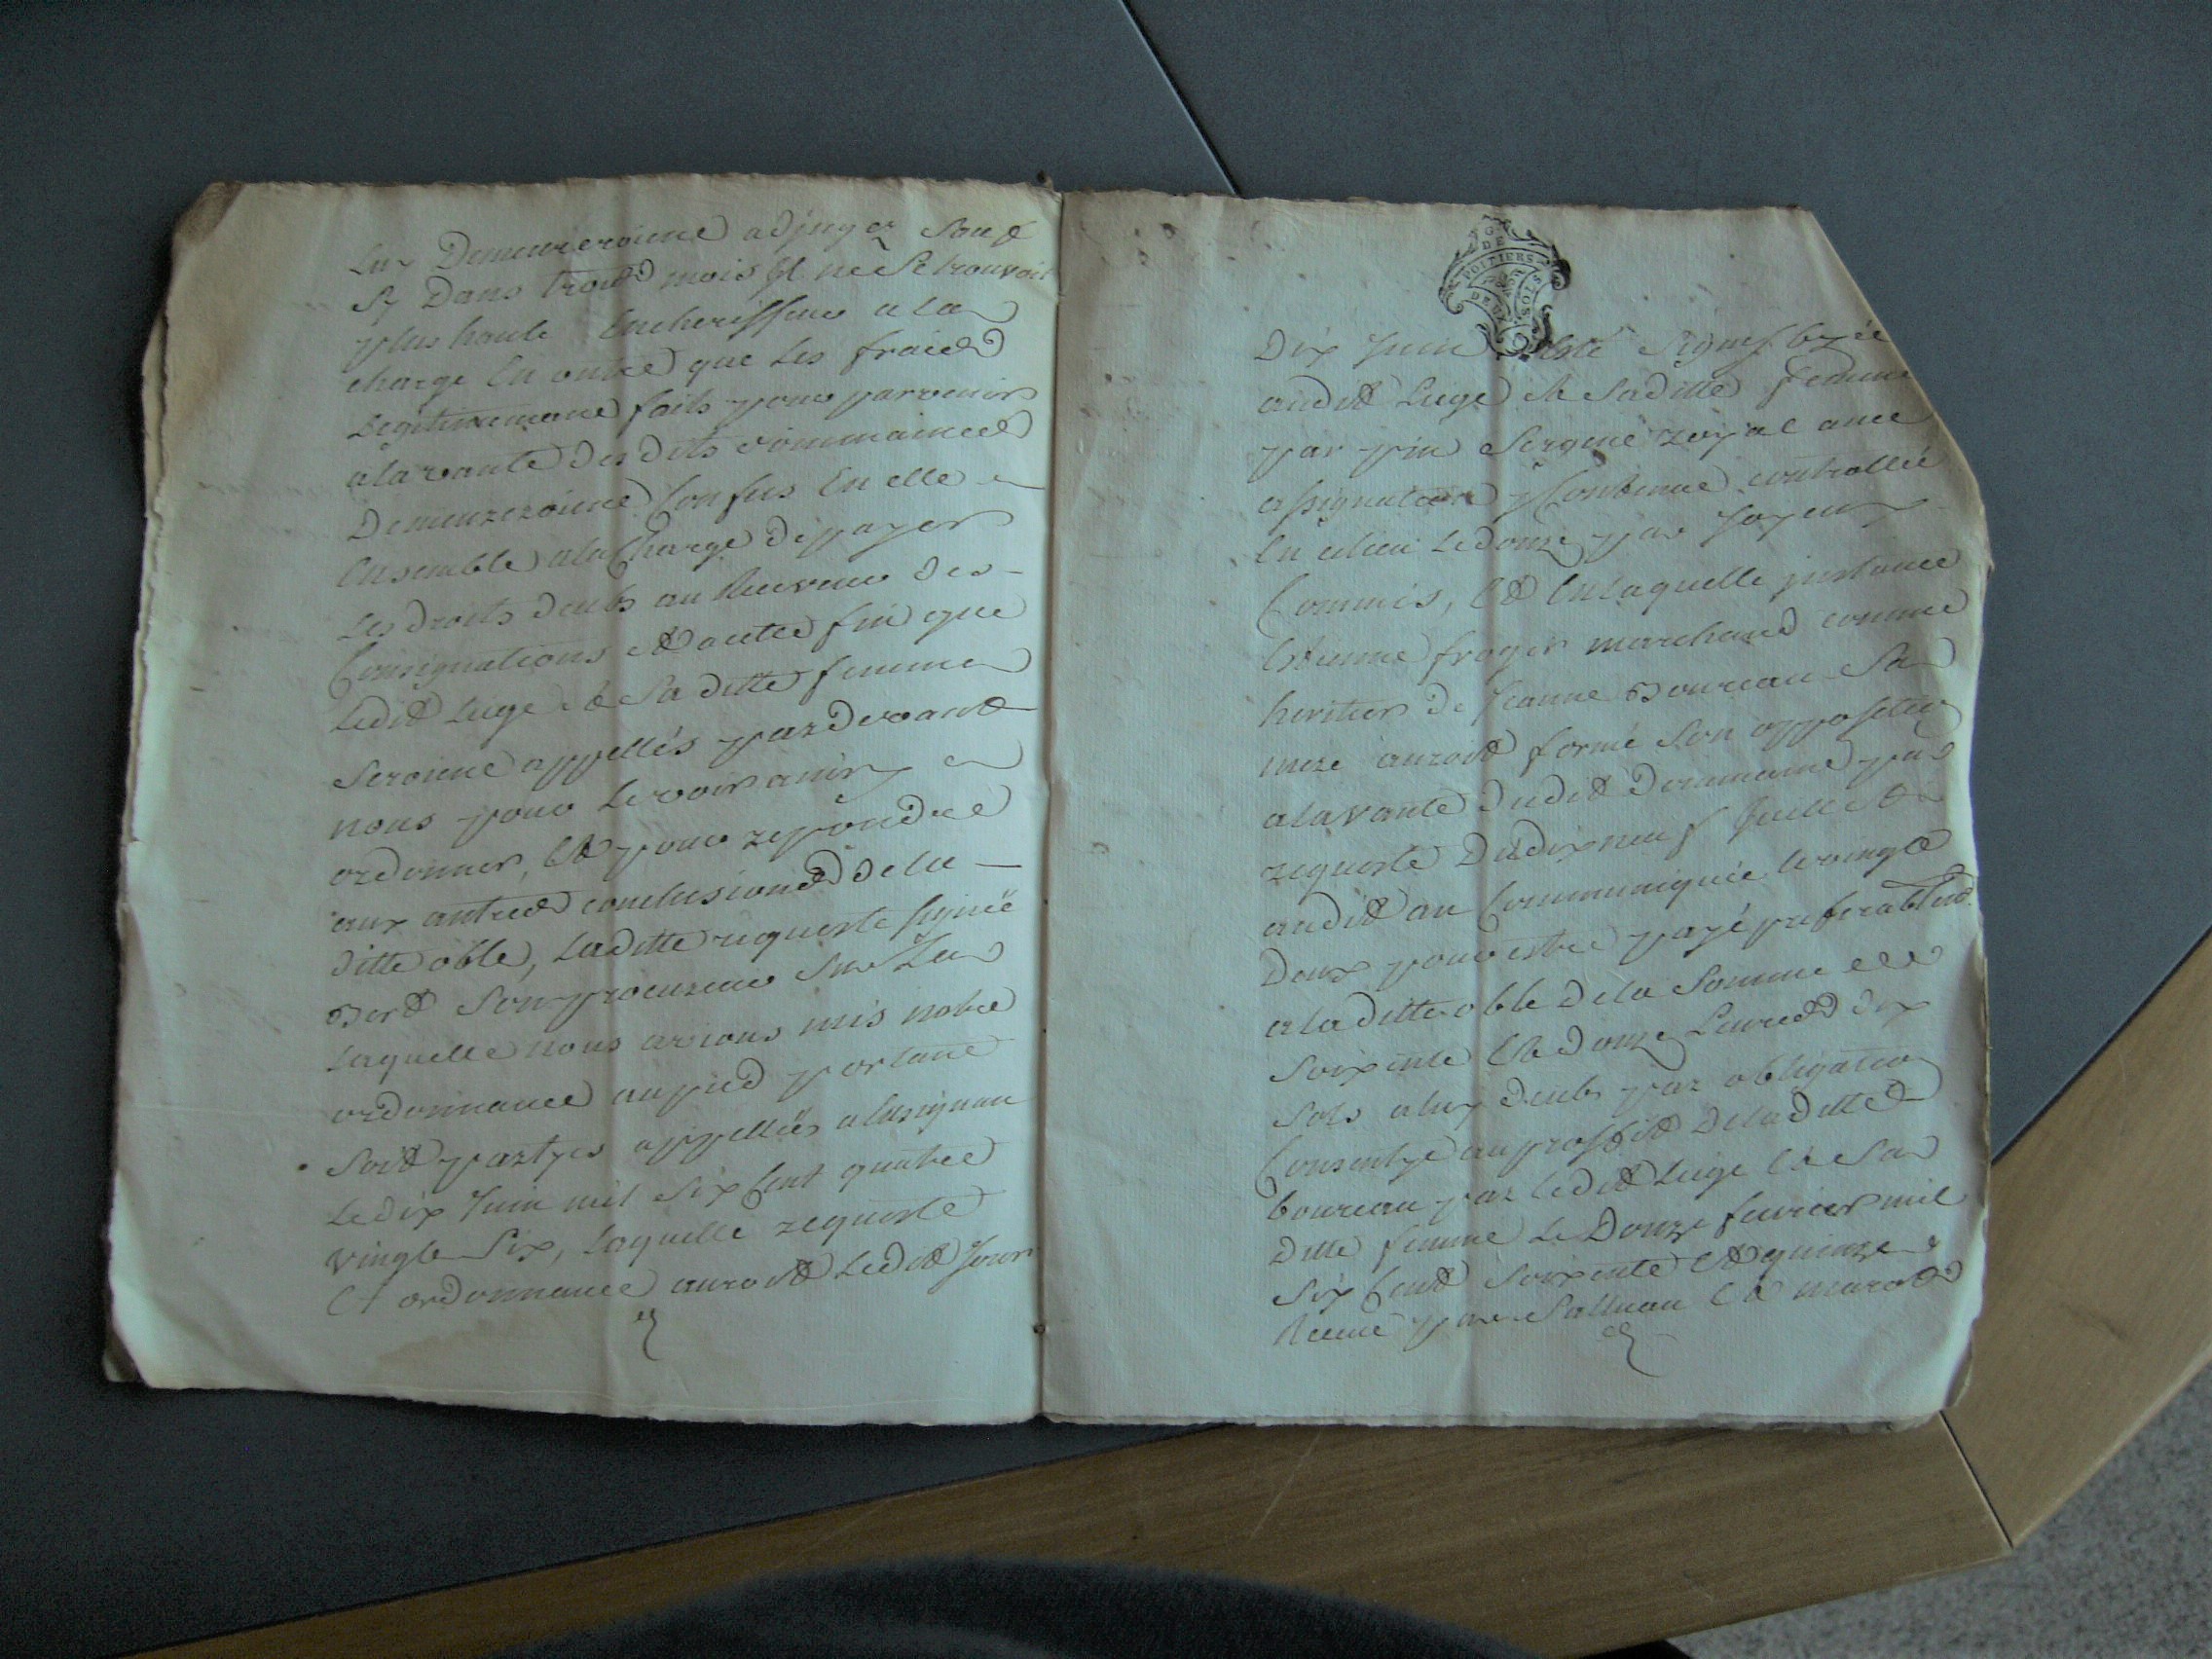 luy Demeureroient adjugez sauf
sy Dans trois mois il ne se trouvoit
plus haute encherisseur a la
charge en outre que les fraicts
legitimement faits pour parvenir
a la vante des dits dommaines
Demeureroient confus en elle
Ensemble a la charge de payer
les droits deubs au Receveur des
Consignations et autre fin que
ledit liége et sa ditte femme
seroient appellés par devant
nous pour le voir ainsy
ordonner, et pour repondre
aux autres conclusions de la
ditte oble, laditte requeste signée
Bert son procureur sur la
laquelle nous avions mis notre
ordonnance au pied portant
soit partyes appellées a lusignan
le dix Juin mil six cent quatre
vingte six, laquelle requeste
et ordonnance auroit ledit Jour
G
DE
POITIERS
DEUX
SOLS
Dix Juin esté signiffiée
audit liége et saditte femme
par sergent royal avec
assignation contenue controllée
en ce lieu le douze par
Commis, et en laquelle instance
Estienne froger marchand comme
heritier de Jeanne Boureau sa
mere auroit formé son opposition
a la vante dudit dommaine par
requeste du dix neuf Juillet
audit an communiquée le vingt
Deux pour estre payé preferablement
a la ditte oble de la somme de
soixente et douze livres dix
sols a luy deubs par obligation
Consentye au proffit de la ditte
boureau par ledit liége et sa
ditte femme le Douze fevrier mil
six cent soixente et quinze
Receue par Salluau et marot